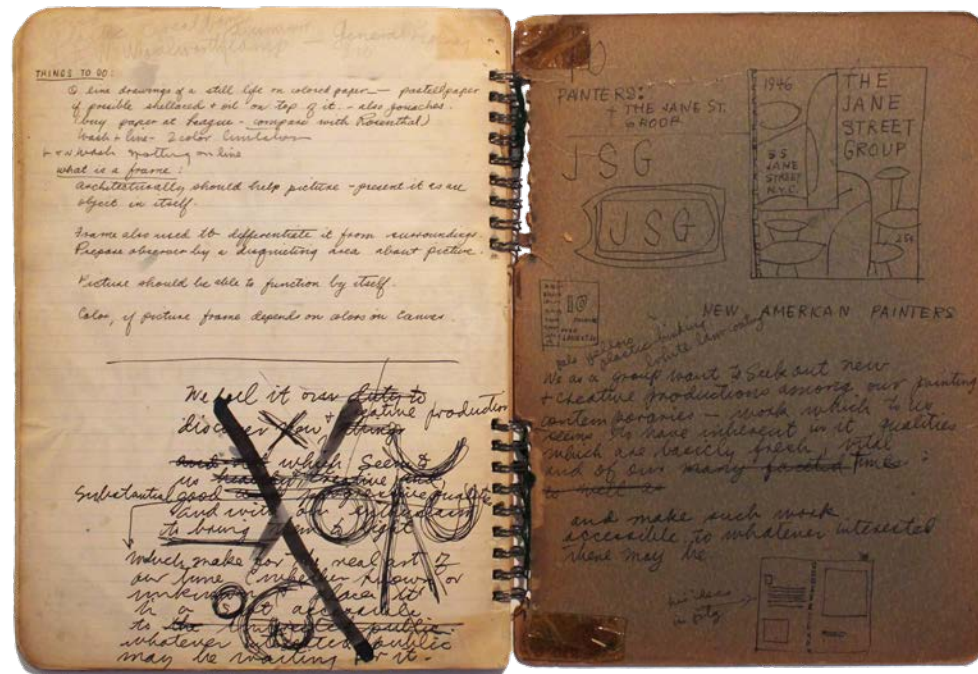 General
THINGS TO DO:
line drawings of a still life on colored paper — pastel paper
if possible shellaced + oil on top of it. - also gouaches.
(buy paper at League - compare with Rosenthal)
Wash + line - 2 color
wash on line
what is a frame:
architecturally should help picture - present it as an
object in itself.
Frame also used to differentiate it from surroundings.
Prepare observer by a disquieting area about picture.
Picture should be able to function by itself.
Color, if picture frame depends on colors on canvas.
We feel it our duty to
discover new + creative production
things
and which seem to
us healthy, creative and
Substantial good progressive
and with our enthusiasm
to bring them to light
which make for the real art of
our time (whether known or
unknown + place it
in a accessible
to the public
whatever interested public
may be waiting for it.
10
PAINTERS:
THE JANE ST.
GROOP
JSG
JSG
1946
THE
JANE
STREET
GROUP
35
JANE
STREET
N.Y.C.
25¢
10
NEW AMERICAN PAINTERS
pale yellow
plastic binking
white
We as a group want to seek out new
+ creative productions among our painting
contemporaries — work which to us
seems to have inherent in it qualities
which are basicly fresh, vital
and of our many faceted times:
to well as
and make such work
accessible to whatever interested
there may be